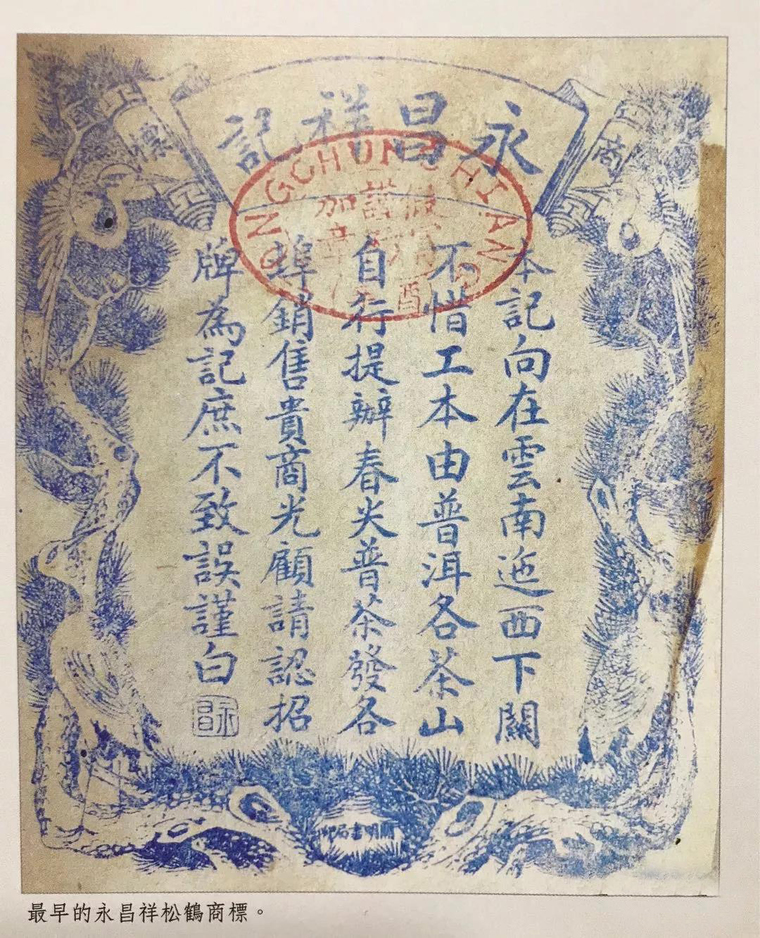 商標
永昌祥記
本記向在雲南迤西下關
不惜工本由普洱各茶山
自行提辦春尖普茶發各
埠銷售貴商光顧請認招
牌為記庶不致誤謹白
永昌
最早的永昌祥松鶴商標。